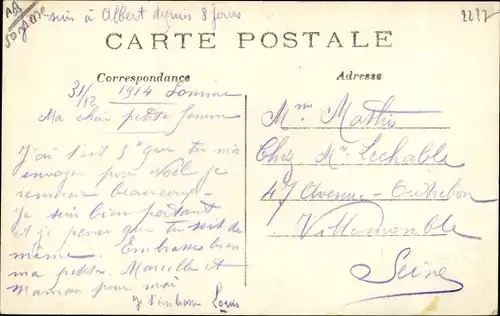 suis à Albert depuis 8 jours
2217
CARTE POSTALE
Correspondance
Adresse
31/12 1914 Somme
Ma chère petite femme
J'ai que tu m'a
envoyer pour Noël je
remercie beaucoup
Je suis bien portant
et je pense que tu soit de
même. Embrasse bien
ma petite Marcelle et
maman pour moi
Je t'embrasse Louis
Mme Mathis
Chez Mr Lechable
47 Avenue
Villemomble
Seine